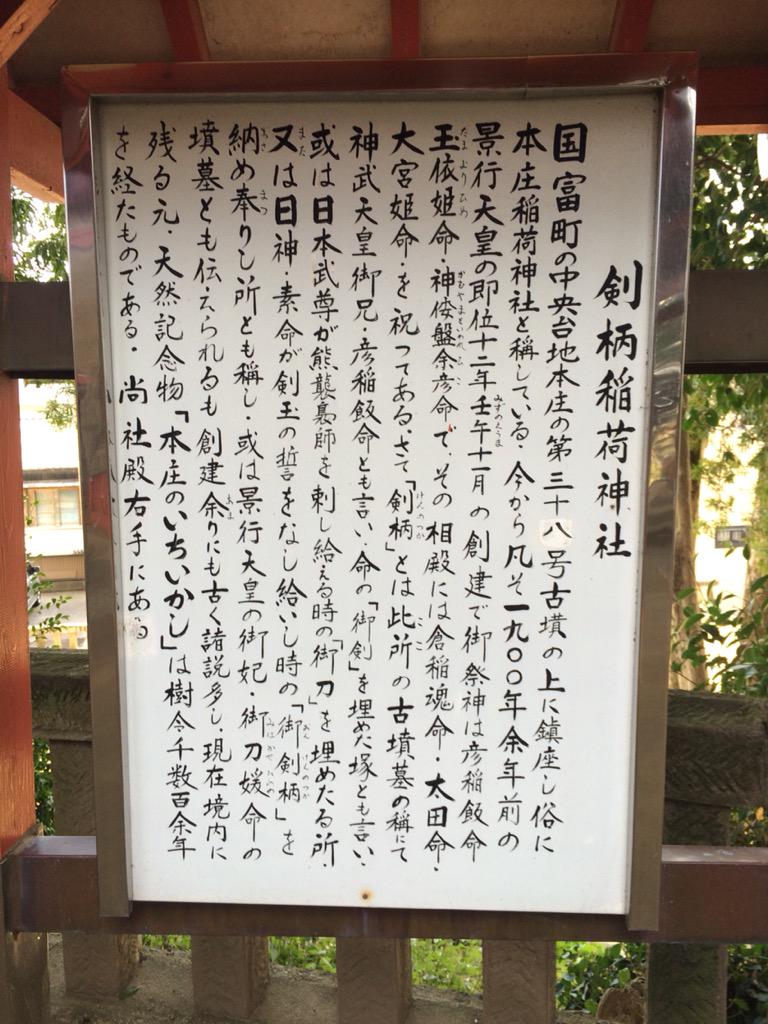 剣柄稲荷神社
国富町の中央台地本庄の第三十八号古墳の上に鎮座し俗に
本庄稲荷神社と称している・今から凡そ一九〇〇年余年前の
景行天皇の即位十二年壬午十一月の創建で御祭神は彦稲飯命
玉依姫命・神倭盤余彦命で、その相殿には倉稲魂命・太田命・
大宮姫命・を祝つてある、さて「剣柄」とは此所の古墳墓の称にて
神武天皇御兄・彦稲飯命とも言い、命の「御剣」を埋めた塚とも言い・
或は日本武尊が熊襲梟師を刺し給える時の「御刀」を埋めたる所・
又は日神・素命が剣玉の誓をなし給いし時の「御剣柄」を
納め奉りし所とも称し・或は景行天皇の御妃・御刀媛命の
墳墓とも伝えられるも創建余りにも古く諸説多し、現在境内に
残る元・天然記念物「本庄のいちいかし」は樹令千数百余年
を経たものである・尚社殿右手にある